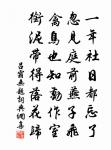 一年社日都忘了
忽見庭前燕子飛
禽鳥也知勤作室
銜泥帶得落花歸
呂霜無題詞與網壽